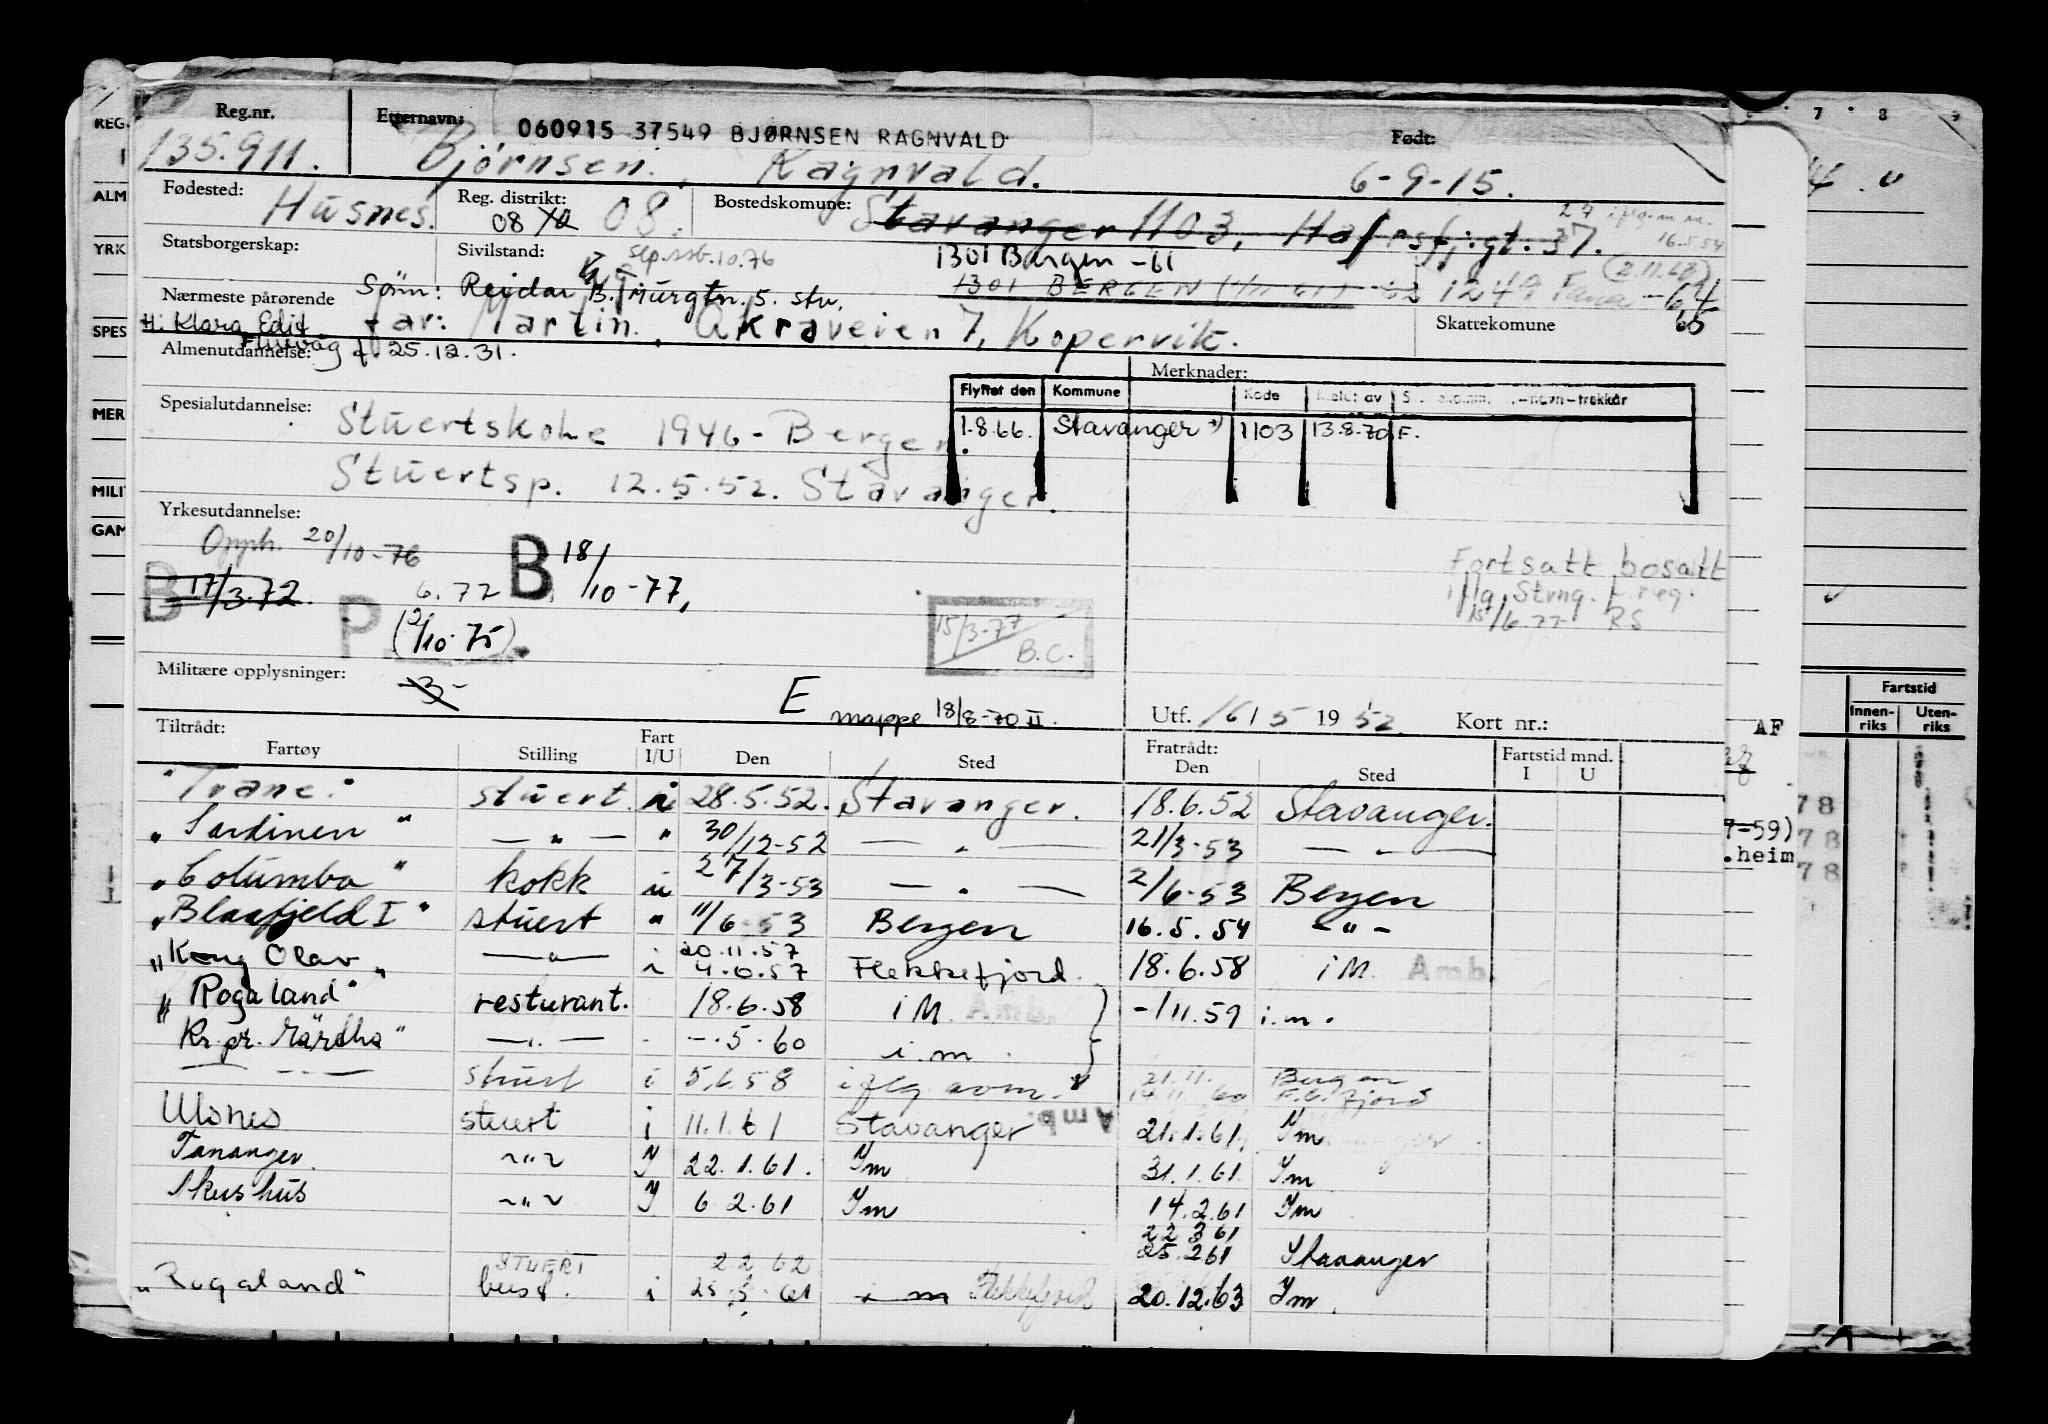 Reg.nr. Etternavn: 060915 37549 BJØRNSEN RAGNVALD Født:
135.911. Bjørnsen, Ragnvald. 6-9-15.
Fødested: Husnes. Reg. distrikt: 08 08. Bostedskomune: Stavanger 1103, Hafrsfj.gt. 37.
16.5.54
Statsborgerskap: Sivilstand: Sep. ssb. 10.76 1301 Bergen -61
Sønn: Reidar B. Murgtn. 5. stv. 1301 BERGEN 1249 Fana -64
(2.11.62)
65
Nærmeste pårørende Far: Martin, Åkraveien 7, Kopervik. Skattekomune
H: Klara Edit
f. 25.12.31.
Almenutdannelse: Merknader:
Flyttet den Kommune Kode Meldt av
1.8.66. Stavanger 1103 13.8.70 F.
Spesialutdannelse: Stuertskole 1946 - Bergen
Stuertsp. 12.5.52. Stavanger.
Yrkesutdannelse:
Opph. 20/10-76 B 18/10-77,
B 17/3.72. P 6.72
(2/10.75)
15/3-77
B.C.
Fortsatt bosatt
iflg. Stvng. f.reg.
15/6.77 RS
Militære opplysninger: -3-
E mappe 18/8-70 II. Utf. 16/5 1952. Kort nr.:
Tiltrådt: Fratrådt:
Fartøy Stilling Fart I/U Den Sted Den Sted Fartstid mnd. I U
"Trane." stuert. i 28.5.52. Stavanger. 18.6.52 Stavanger.
"Sardinen" — " — " 30/12-52 — " — 21/3-53 — " —
"Columba" kokk u 27/3-53 — " — 2/6-53 Bergen
"Blaafjeld I" stuert " 11/6-53 Bergen 16.5.54 - " -
"Kong Olav" — " — i 20.11.57
4.6.57 Flekkefjord. 18.6.58 i M. Amb.
"Rogaland" resturant. 18.6.58 i M. Amb. -/11.59 i.m.
Kr. pr. Märtha" — " — -.5.60 i.m.
— " — stuert i 5.6.58 iflg. 21.11. Bergen
Ulsnes stuert i 11.1.61 Stavanger Amb. 21.1.61. Ym
Tananger ~ " ~ Y 22.1.61. Ym 31.1.61 Ym
Akershus ~ " ~ Y 6.2.61 Ym 14.2.61 Ym
22.3.61
25.2.61 Stavanger
STUERT 2.2.62
"Rogaland" best. i 25.3.61 i m Flekkefjord 20.12.63 Ym.
REG.
ALM
YRK
SPES
MER
MILI
GAM
7 8 9
Fartstid
Innen-riks Uten-riks
AF
78
7-59) 78
.heim
78